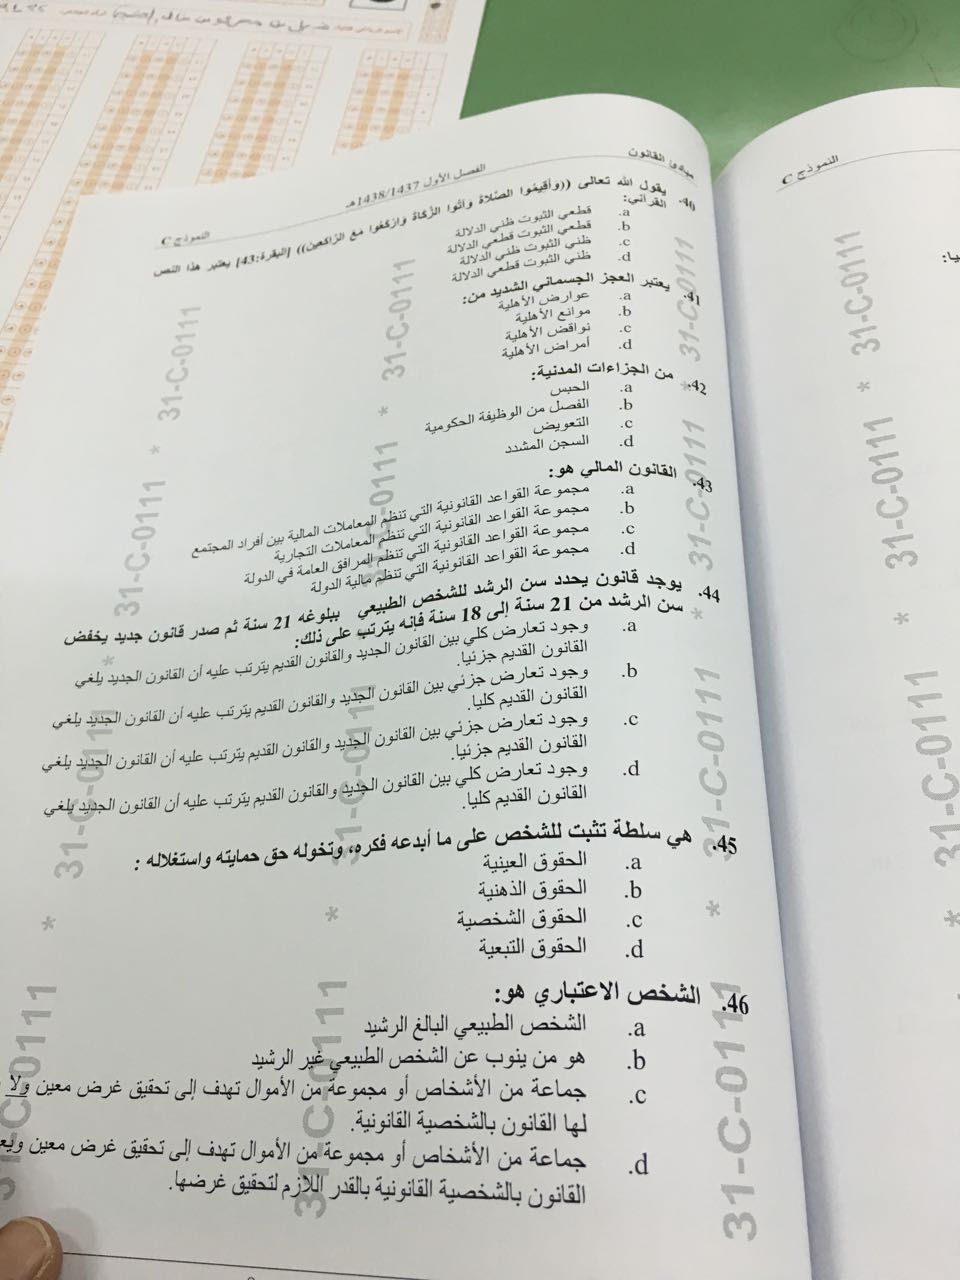 مبادئ القانون
الفصل الأول 1438/1437هـ
النموذج C
40. يقول الله تعالى ((وَأَقِيمُوا الصَّلَاةَ وَآتُوا الزَّكَاةَ وَارْكَعُوا مَعَ الرَّاكِعِينَ)) [البقرة:43] يعتبر هذا النص
القرآني:
a. قطعي الثبوت ظني الدلالة
b. قطعي الثبوت قطعي الدلالة
c. ظني الثبوت ظني الدلالة
d. ظني الثبوت قطعي الدلالة
41. يعتبر العجز الجسماني الشديد من:
a. عوارض الأهلية
b. موانع الأهلية
c. نواقض الأهلية
d. أمراض الأهلية
42. من الجزاءات المدنية:
a. الحبس
b. الفصل من الوظيفة الحكومية
c. التعويض
d. السجن المشدد
43. القانون المالي هو:
a. مجموعة القواعد القانونية التي تنظم المعاملات المالية بين أفراد المجتمع
b. مجموعة القواعد القانونية التي تنظم المعاملات التجارية
c. مجموعة القواعد القانونية التي تنظم المرافق العامة في الدولة
d. مجموعة القواعد القانونية التي تنظم مالية الدولة
44. يوجد قانون يحدد سن الرشد للشخص الطبيعي ببلوغه 21 سنة ثم صدر قانون جديد يخفض
سن الرشد من 21 سنة إلى 18 سنة فإنه يترتب على ذلك:
a. وجود تعارض كلي بين القانون الجديد والقانون القديم يترتب عليه أن القانون الجديد يلغي
القانون القديم جزئيا.
b. وجود تعارض جزئي بين القانون الجديد والقانون القديم يترتب عليه أن القانون الجديد يلغي
القانون القديم كليا.
c. وجود تعارض جزئي بين القانون الجديد والقانون القديم يترتب عليه أن القانون الجديد يلغي
القانون القديم جزئيا.
d. وجود تعارض كلي بين القانون الجديد والقانون القديم يترتب عليه أن القانون الجديد يلغي
القانون القديم كليا.
45. هي سلطة تثبت للشخص على ما أبدعه فكره، وتخوله حق حمايته واستغلاله :
a. الحقوق العينية
b. الحقوق الذهنية
c. الحقوق الشخصية
d. الحقوق التبعية
46. الشخص الاعتباري هو:
a. الشخص الطبيعي البالغ الرشيد
b. هو من ينوب عن الشخص الطبيعي غير الرشيد
c. جماعة من الأشخاص أو مجموعة من الأموال تهدف إلى تحقيق غرض معين ولا
لها القانون بالشخصية القانونية.
d. جماعة من الأشخاص أو مجموعة من الأموال تهدف إلى تحقيق غرض معين
القانون بالشخصية القانونية بالقدر اللازم لتحقيق غرضها.
31-C-0111 * 31-C-0111 * 31-C-0111 * 31-C-0111
31-C-0111 * 31-C-0111 * 31-C-0111 * 31-C-0111
31-C-0111 * 31-C-0111 * 31-C-0111 * 31-C-0111
النموذج C
31-C-0111 * 31-C-0111 * 31-C-0111 *